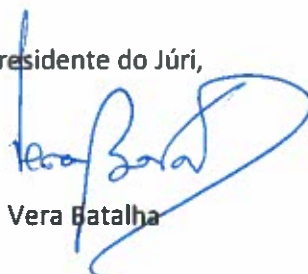 residente do Júri,
Vera Batalha